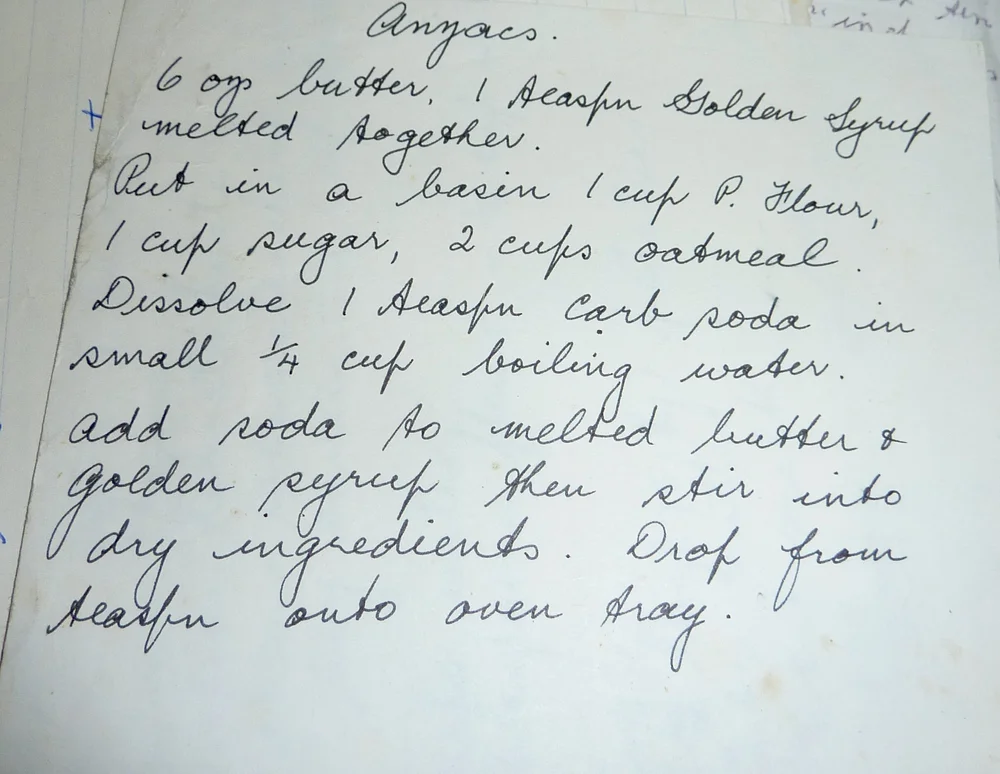 Anzacs.
6 ozs butter, 1 teaspn Golden Syrup
+ melted together.
Put in a basin 1 cup P. Flour,
1 cup sugar, 2 cups oatmeal.
Dissolve 1 teaspn Carb soda in
small 1/4 cup boiling water.
add soda to melted butter &
golden syrup then stir into
dry ingredients. Drop from
teaspn onto oven tray.